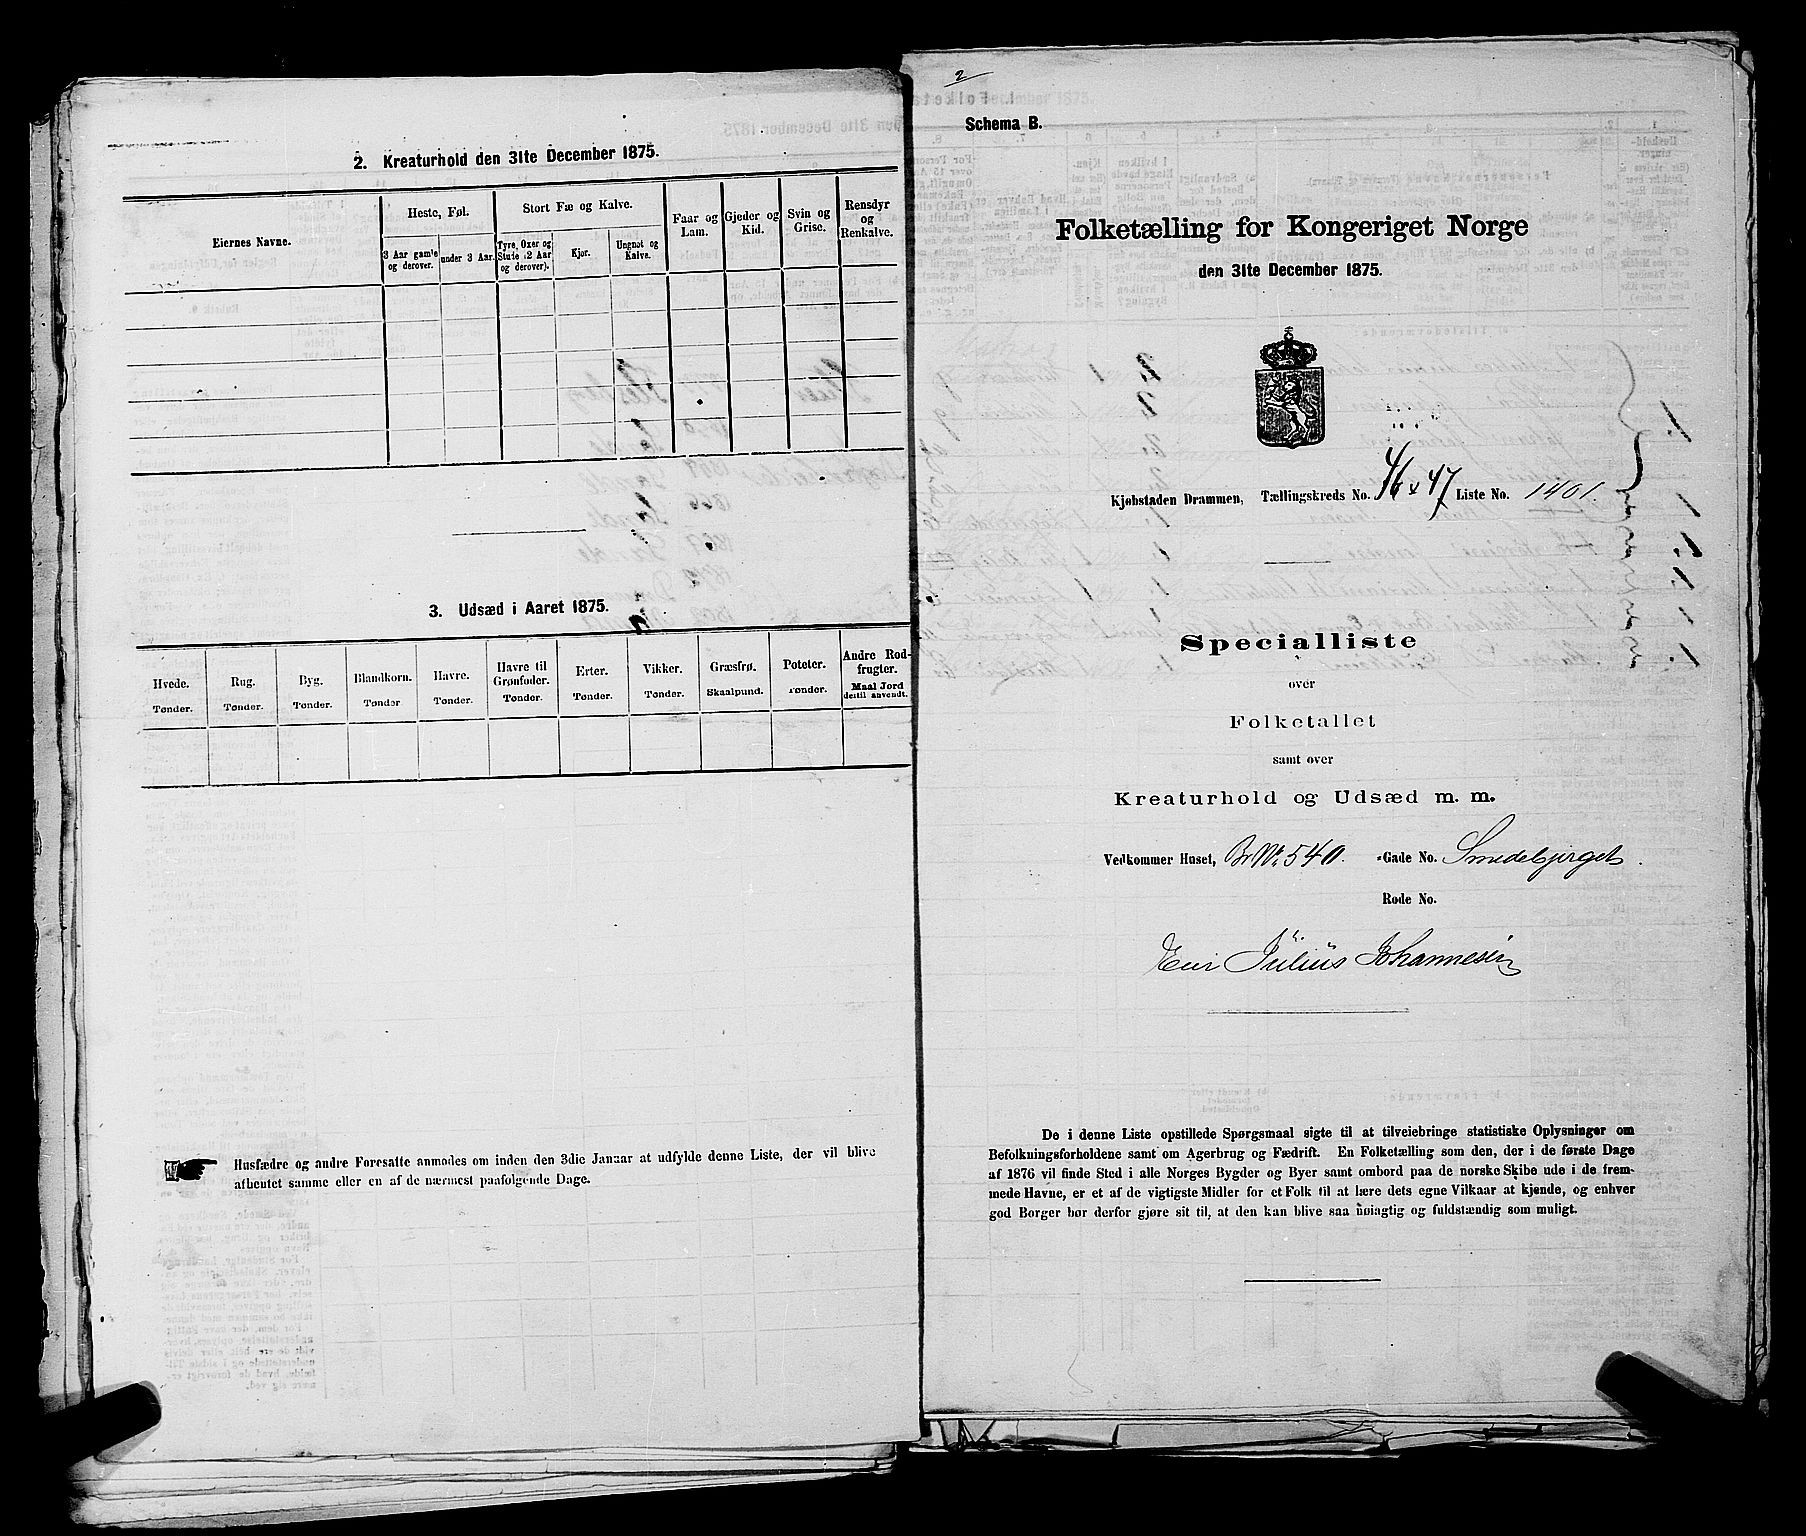 2. Kreaturhold den 31te December 1875.
Eiernes Navne.
Heste, Føl.
Stort Fæ og Kalve.
Faar og Lam.
Gjeder og Kid.
Svin og Grise.
Rensdyr og Renkalve.
3 Aar gamle og derover.
under 3 Aar.
Tyre, Oxer og Stute (2 Aar og derover).
Kjør.
Ungnøt og Kalve.
3. Udsæd i Aaret 1875.
Hvede.
Rug.
Byg.
Blandkorn.
Havre.
Havre til Grønfoder.
Erter.
Vikker.
Græsfrø.
Poteter.
Andre Rodfrugter.
Tønder.
Tønder.
Tønder.
Tønder.
Tønder.
Tønder.
Tønder.
Tønder.
Skaalpund.
Tønder.
Maal Jord dertil anvendt.
Husfædre og andre Foresatte anmodes om inden den 3die Januar at udfylde denne Liste, der vil blive
afhentet samme eller en af de nærmest paafølgende Dage.
2
Schema B.
Folketælling for Kongeriget Norge
den 31te December 1875.
Kjøbstaden Drammen, Tællingskreds No. 46 & 47 Liste No. 1401.
Specialliste
over
Folketallet
samt over
Kreaturhold og Udsæd m. m.
Vedkommer Huset, Br No. 540. -Gade No. Smedebjerget.
Rode No.
Eier Julius Johannesen
De i denne Liste opstillede Spørgsmaal sigte til at tilveiebringe statistiske Oplysninger om
Befolkningsforholdene samt om Agerbrug og Fædrift. En Folketælling som den, der i de første Dage
af 1876 vil finde Sted i alle Norges Bygder og Byer samt ombord paa de norske Skibe ude i de frem-
mede Havne, er et af de vigtigste Midler for et Folk til at lære dets egne Vilkaar at kjende, og enhver
god Borger bør derfor gjøre sit til, at den kan blive saa nøiagtig og fuldstændig som muligt.